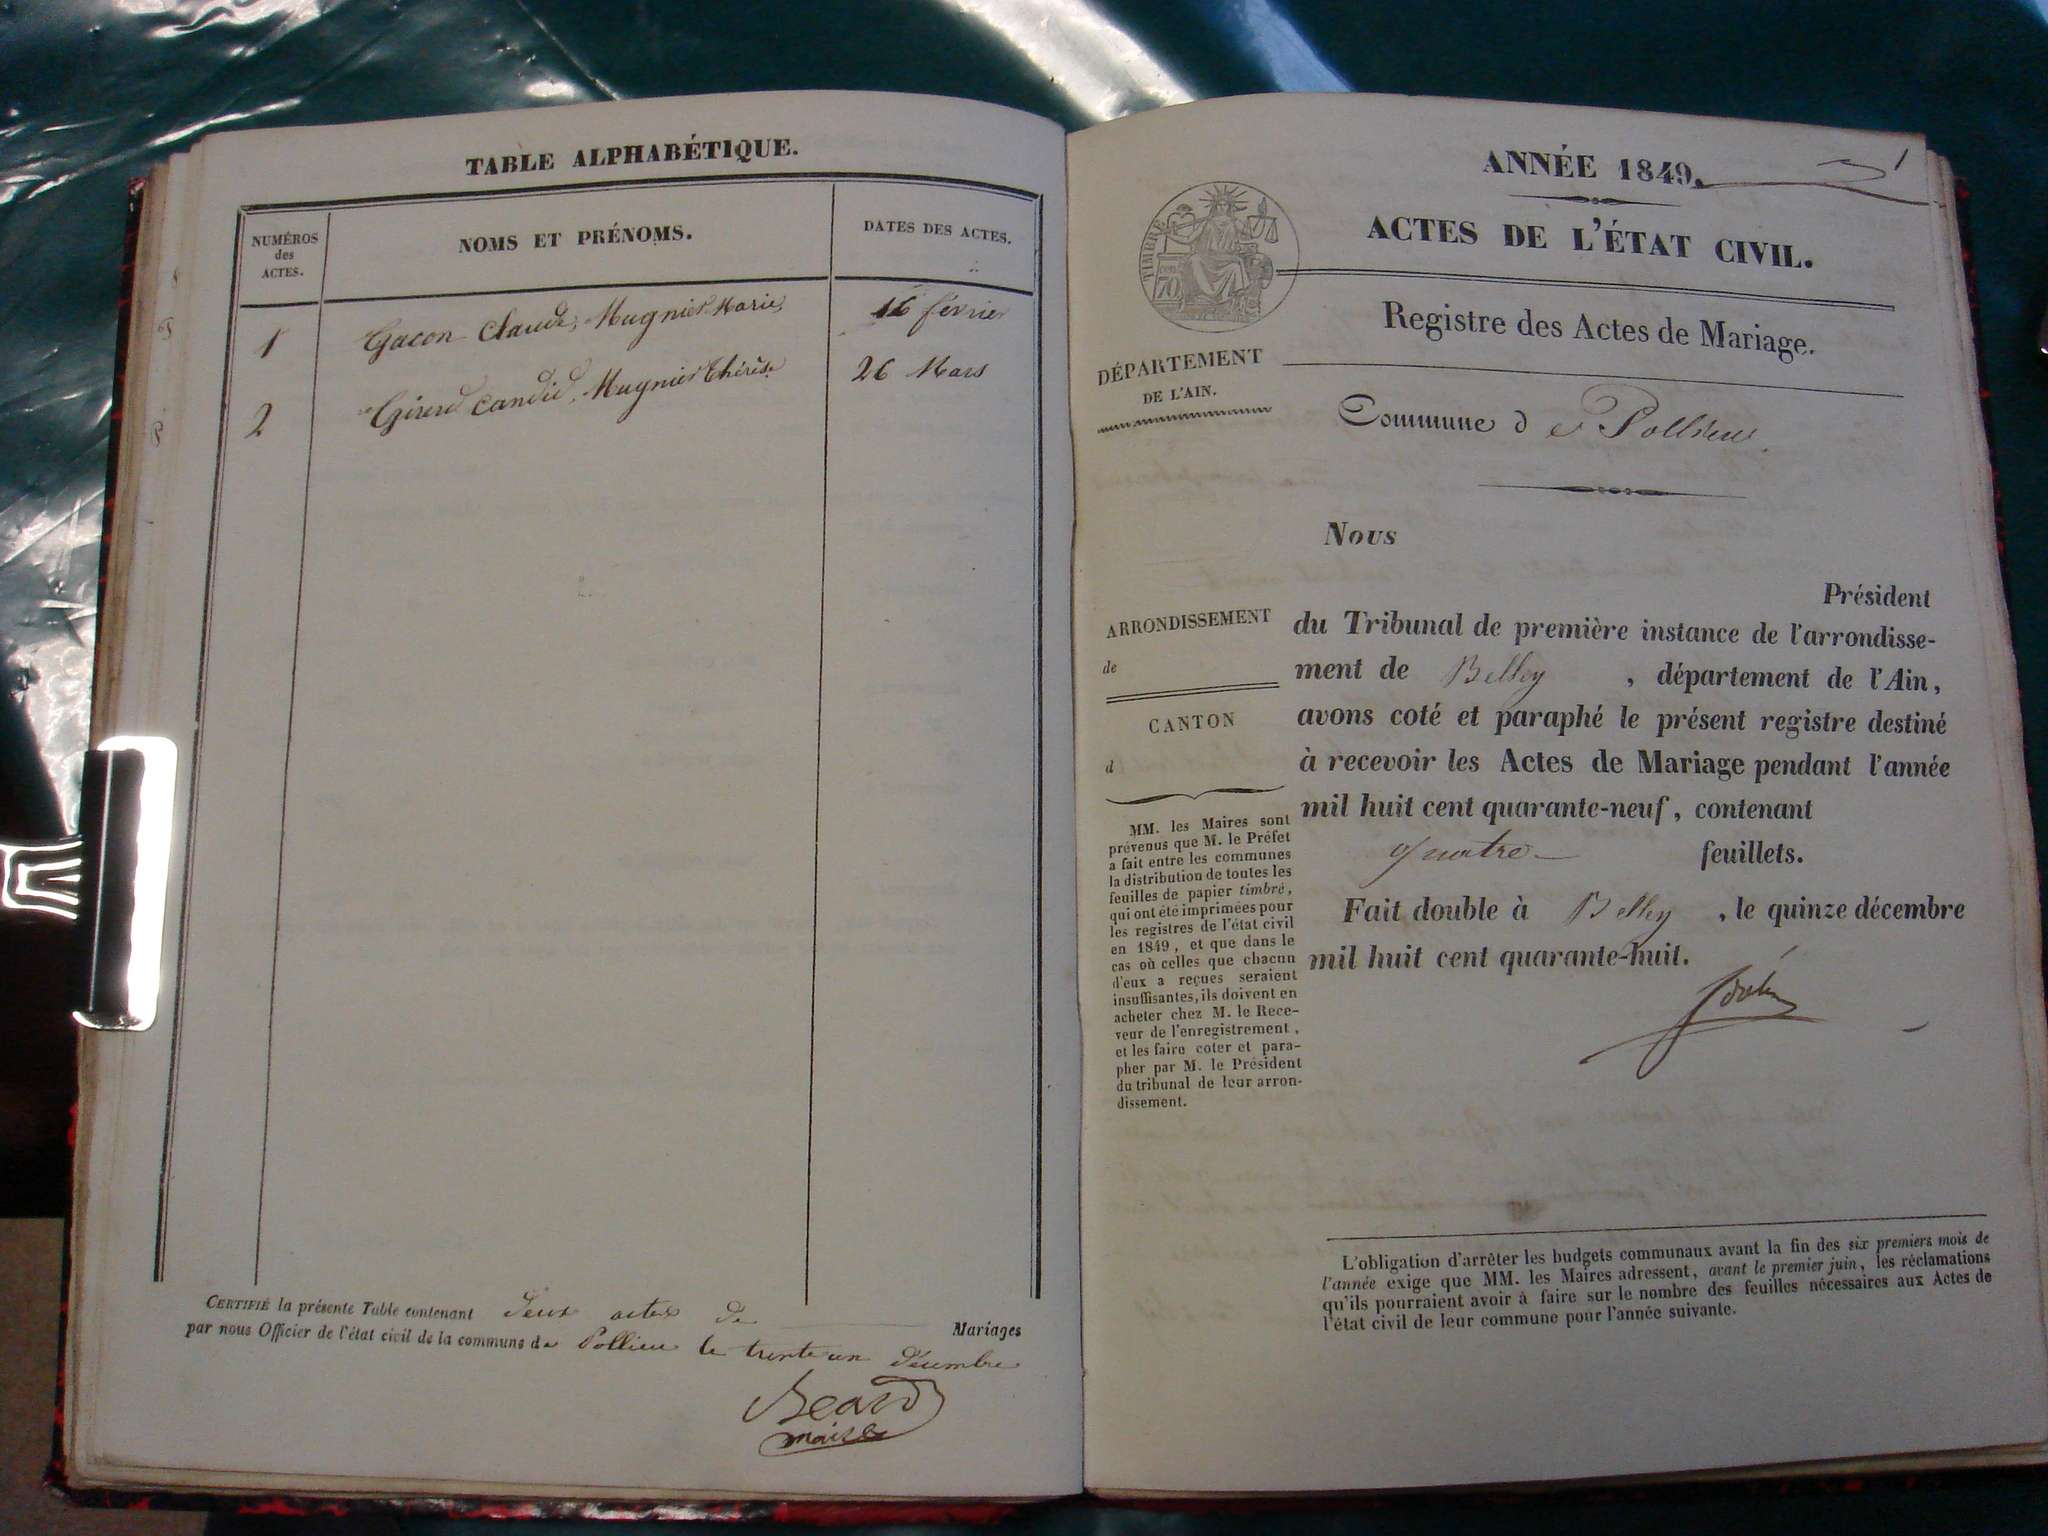 TABLE ALPHABÉTIQUE.
NUMÉROS
des
ACTES.
NOMS ET PRÉNOMS.
DATES DES ACTES.
1 Gacon Claude, Mugnier Marie, 16 février
2 Girerd Candid, Mugnier Thérèse 26 Mars
CERTIFIÉ la présente Table contenant deux actes de Mariages
par nous Officier de l'état civil de la commune de Pollieu le trente un décembre
Beard
maire
1
ANNÉE 1849.
ACTES DE L'ÉTAT CIVIL.
TIMBRE
70
Registre des Actes de Mariage.
DÉPARTEMENT
DE L'AIN.
Commune de Pollieu
Nous
Président
du Tribunal de première instance de l'arrondisse-
ment de Belley, département de l'Ain,
avons coté et paraphé le présent registre destiné
à recevoir les Actes de Mariage pendant l'année
mil huit cent quarante-neuf, contenant
quatre feuillets.
Fait double à Belley, le quinze décembre
mil huit cent quarante-huit.
ARRONDISSEMENT
de
CANTON
d
MM. les Maires sont
prévenus que M. le Préfet
a fait entre les communes
la distribution de toutes les
feuilles de papier timbré,
qui ont été imprimées pour
les registres de l'état civil
en 1849, et que dans le
cas où celles que chacun
d'eux a reçues seraient
insuffisantes, ils doivent en
acheter chez M. le Rece-
veur de l'enregistrement,
et les faire coter et para-
pher par M. le Président
du tribunal de leur arron-
dissement.
L'obligation d'arrêter les budgets communaux avant la fin des six premiers mois de
l'année exige que MM. les Maires adressent, avant le premier juin, les réclamations
qu'ils pourraient avoir à faire sur le nombre des feuilles nécessaires aux Actes de
l'état civil de leur commune pour l'année suivante.